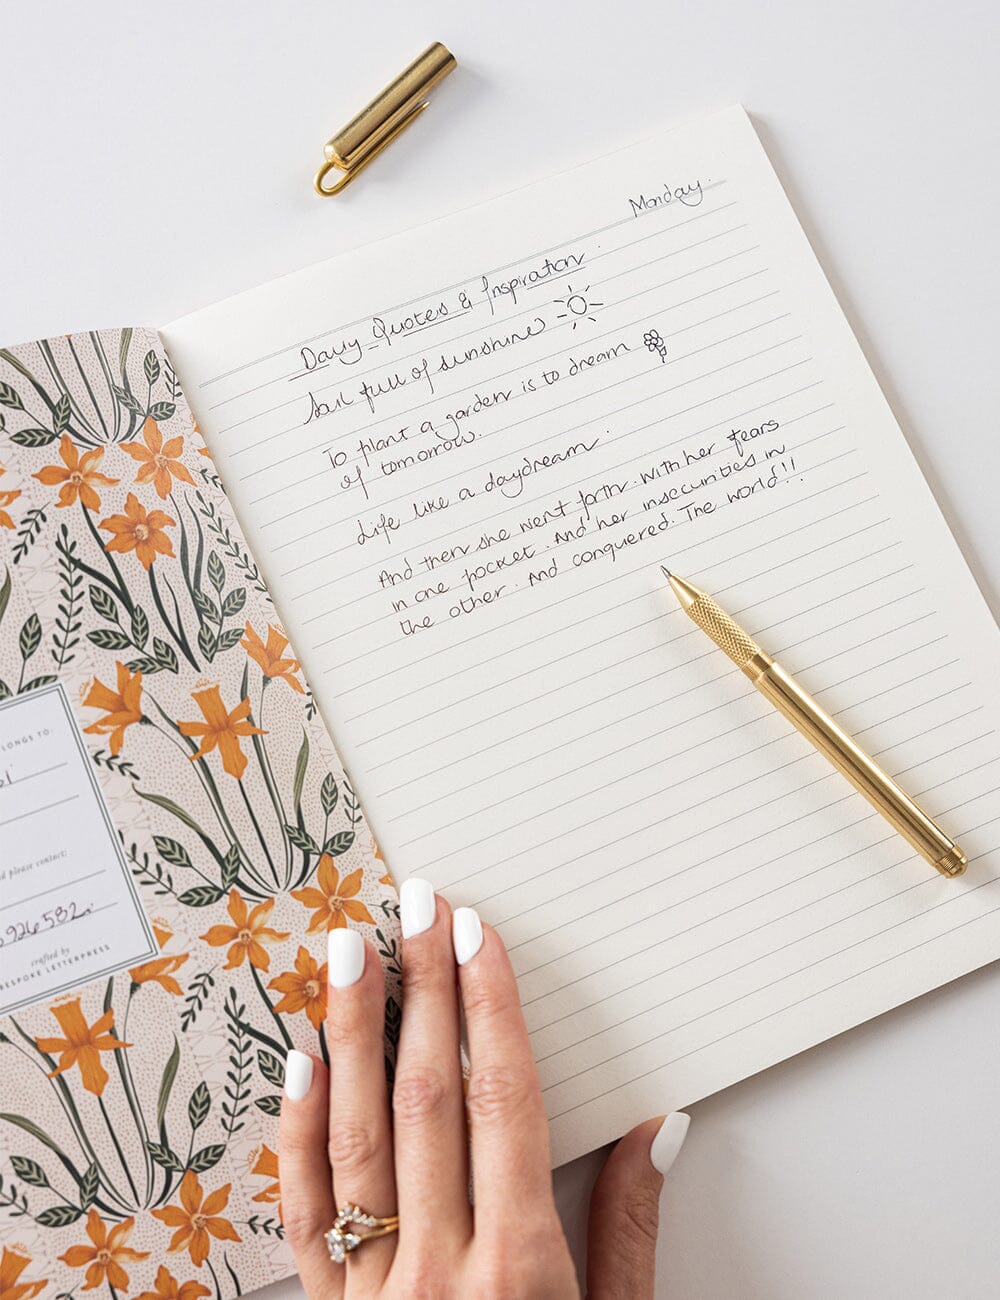 Monday.
Daily Quotes & Inspiration
Soul full of sunshine
To plant a garden is to dream
of tomorrow.
Life like a daydream.
And then she went forth. With her fears
in one pocket. And her insecurities in
the other. And conquered. The world!!
LONGS TO:
d please contact:
926582
crafted by
BESPOKE LETTERPRESS